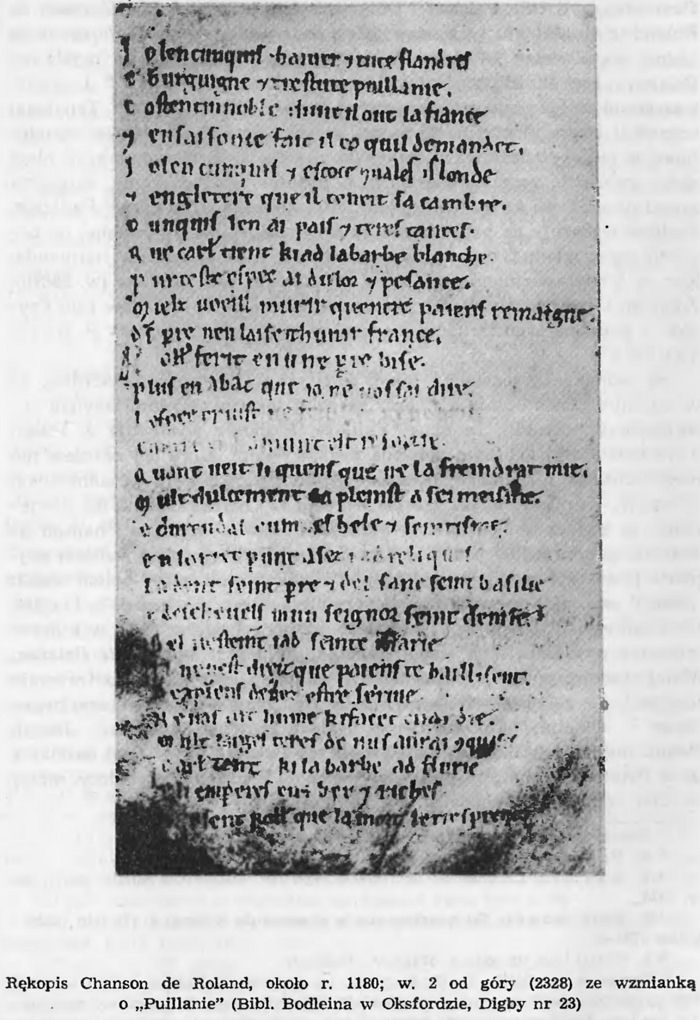 J olencunquis baiuer ⁊ tute flandres
e burguigne ⁊ trestute puillanie.
c ostentinnoble dunt il out la fiance
⁊ ensaisonie fait il co quil demandet.
J olen cunquis ⁊ escoce ⁊uales islonde
⁊ engletere que il teneit sa cambre.
c unquis len ai pais ⁊ teres tantes.
q ue carł tient kiad labarbe blanche.
p ur ceste espee ai dulor ⁊ pesance.
Mielz uoeill murir quentre paiens remaigne.
ds pere nen laiser hunir france.
R oll ferit en une perre bise.
plus en abat que io ne uos sai dire.
l espee cruist
amunt est resortie.
q uant ueit li quens que ne la freindrat mie.
Mult dulcement la pleinst a sei meisme.
e durendal cum es bele ⁊ seintisme.
en loriet punt asez i ad reliques
la dent seint perre ⁊ del sanc seint basilie
e des cheuels mun seignor seint denise
del uestement i ad seinte marie
nen est dreiz que paiens te baillisent.
estre seruie
Ne uos ait hume ki facet cuardie.
Mult larges teres de uus aurai ⁊quises
carł tent ki la barbe ad flurie
empereres ber ⁊ riches.
sent roll que la mort le tresprent
Rękopis Chanson de Roland, około r. 1180; w. 2 od góry (2328) ze wzmianką
o „Puillanie” (Bibl. Bodleina w Oksfordzie, Digby nr 23)